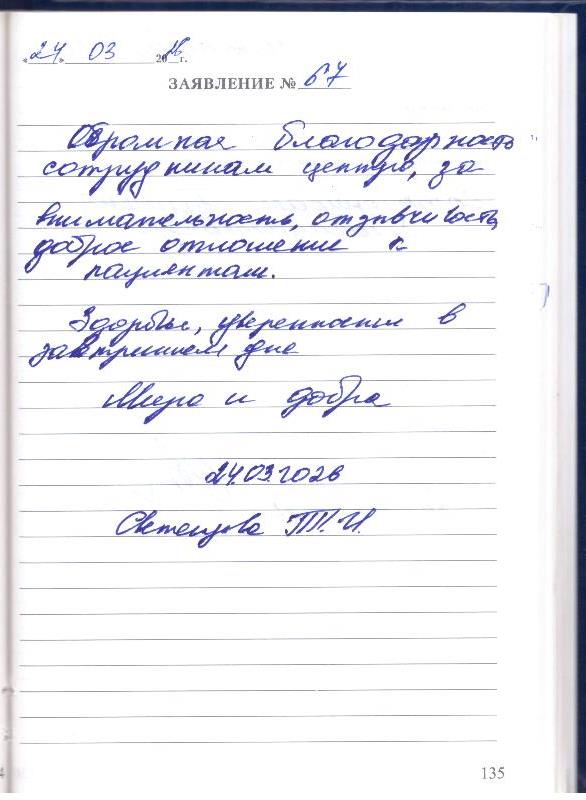 «24» 03 2026 г.
ЗАЯВЛЕНИЕ № 67
Огромная благодарность
сотрудникам центра, за
внимательность, отзывчивость,
доброе отношение к
пациентам.
Здоровья, уверенности в
завтрашнем дне
Мира и добра
24.03.2026
Т.И.
135